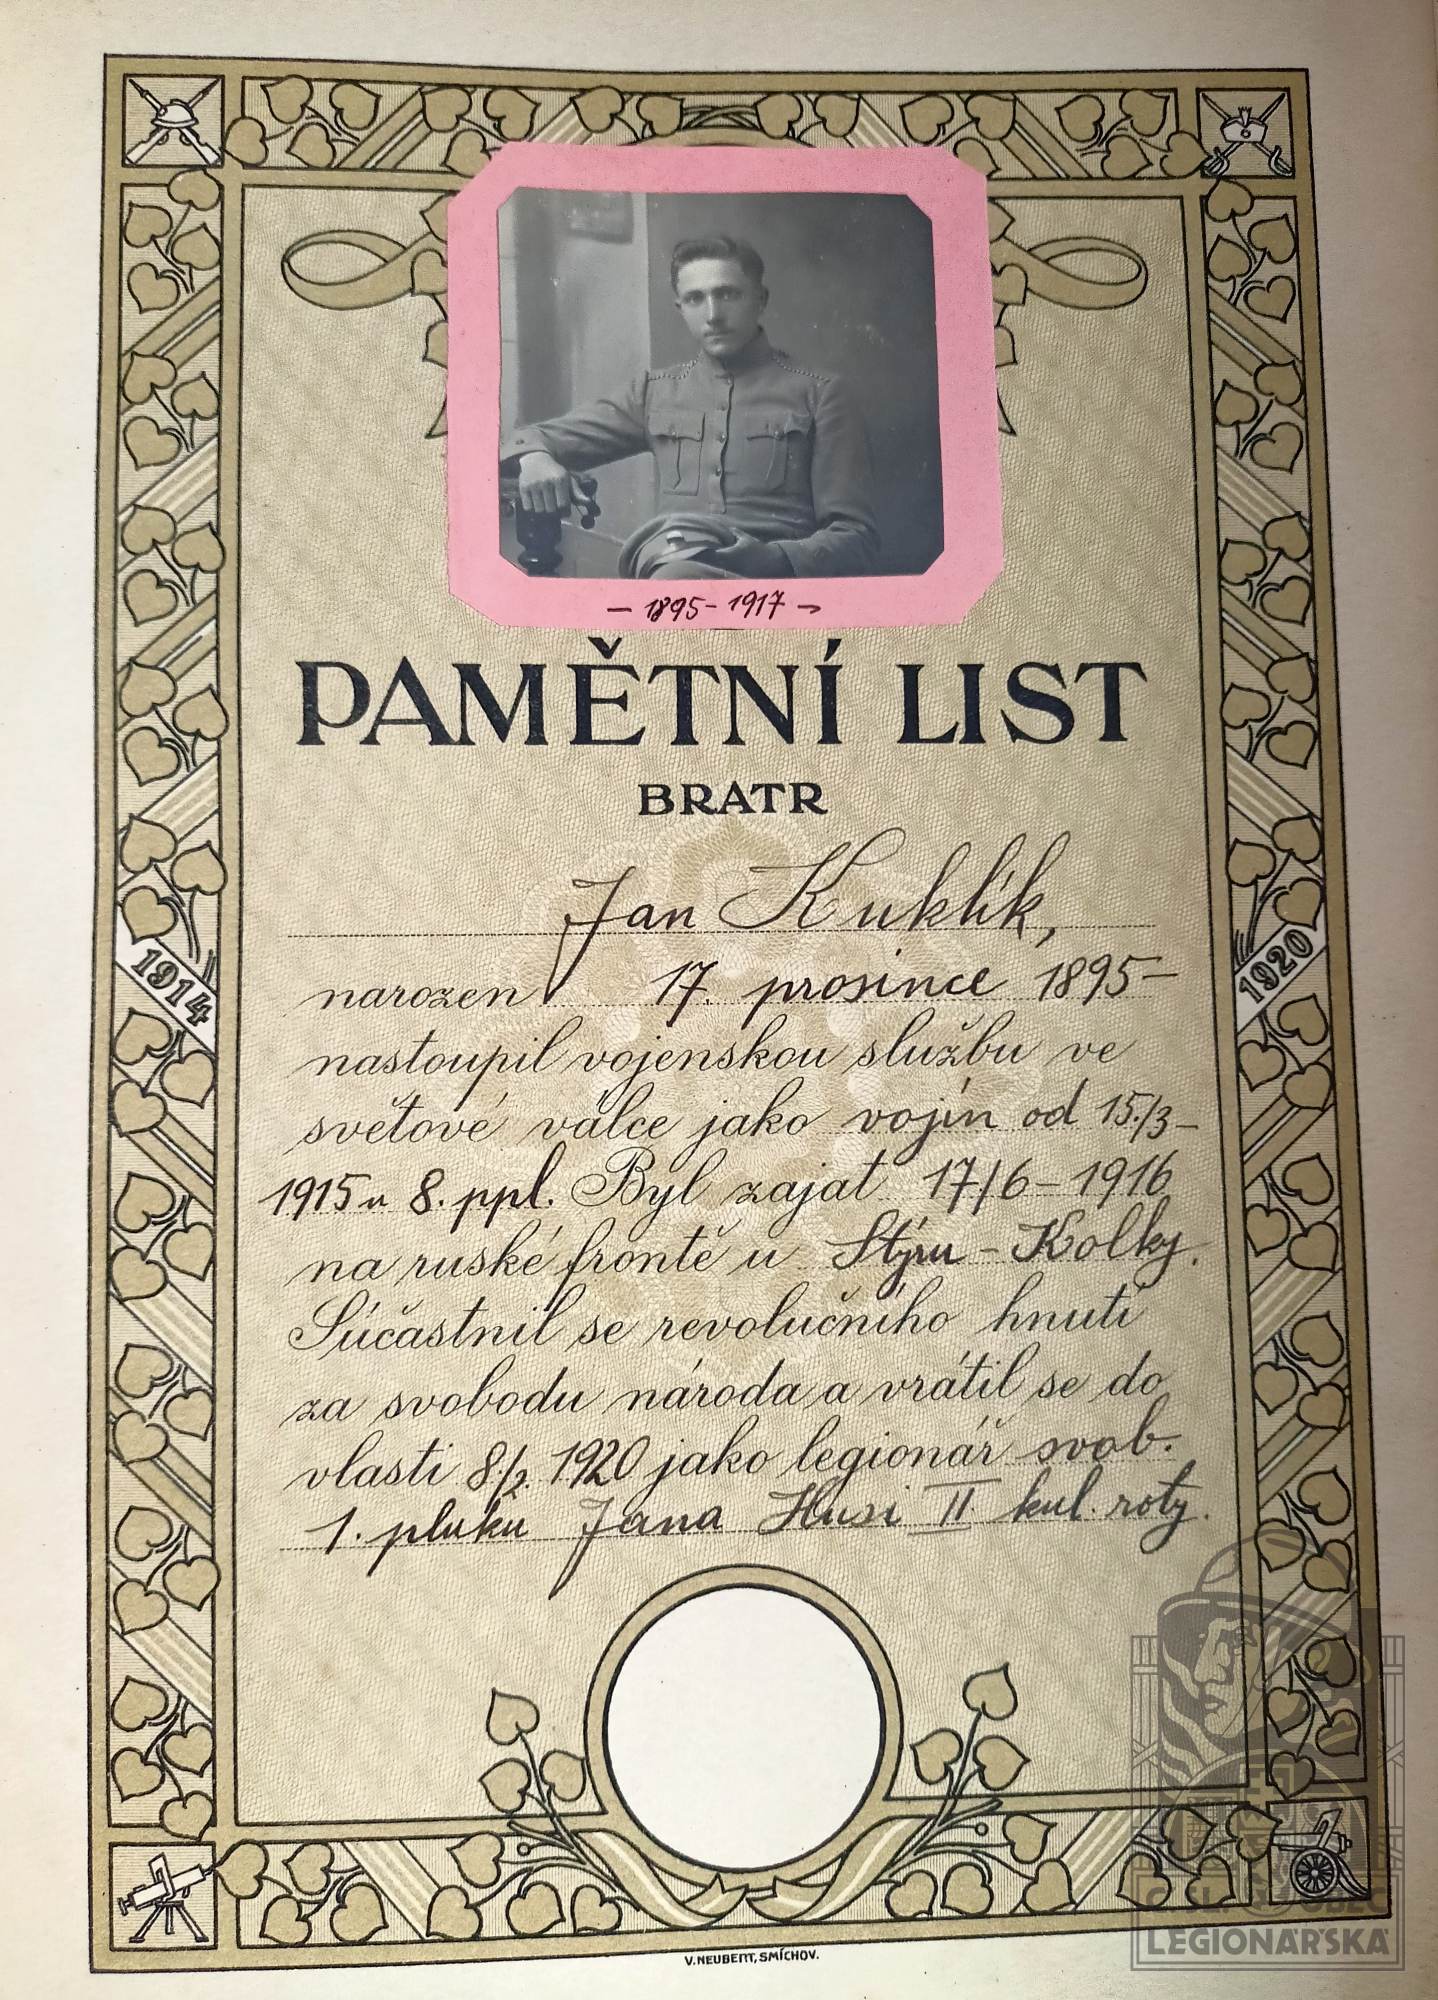 – 1895 – 1917 –
PAMĚTNÍ LIST
BRATR
Jan Kuklík,
narozen 17. prosince 1895 –
nastoupil vojenskou službu ve
světové válce jako vojín od 15./3 –
1915 u 8. ppl. Byl zajat 17/6 – 1916
na ruské frontě u Stýru – Kolky.
Súčastnil se revolučního hnutí
za svobodu národa a vrátil se do
vlasti 8./2. 1920 jako legionář svob.
1. pluku Jana Husi II. kul. roty.
1914
1920
V. NEUBERT, SMÍCHOV.
ČSL. OBEC
LEGIONÁŘSKÁ